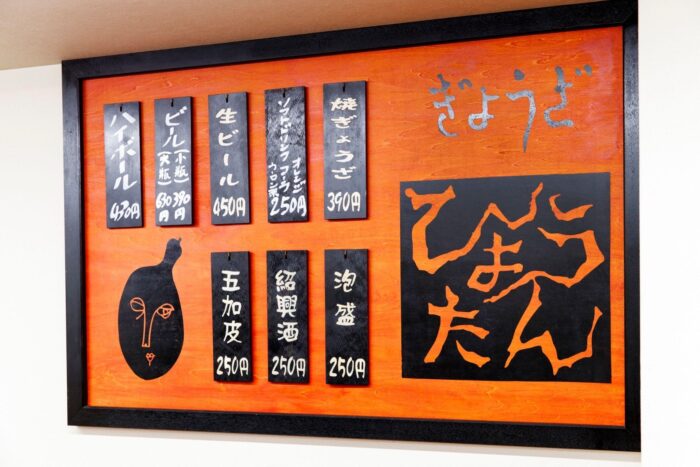 ぎょうざ
ひょうたん
焼ぎょうざ
390円
ソフトドリンク コーラ
オレンジ
ウーロン茶
250円
生ビール
450円
ビール
(小瓶) 390円
(大瓶) 630円
ハイボール
450円
泡盛
250円
紹興酒
250円
五加皮
250円